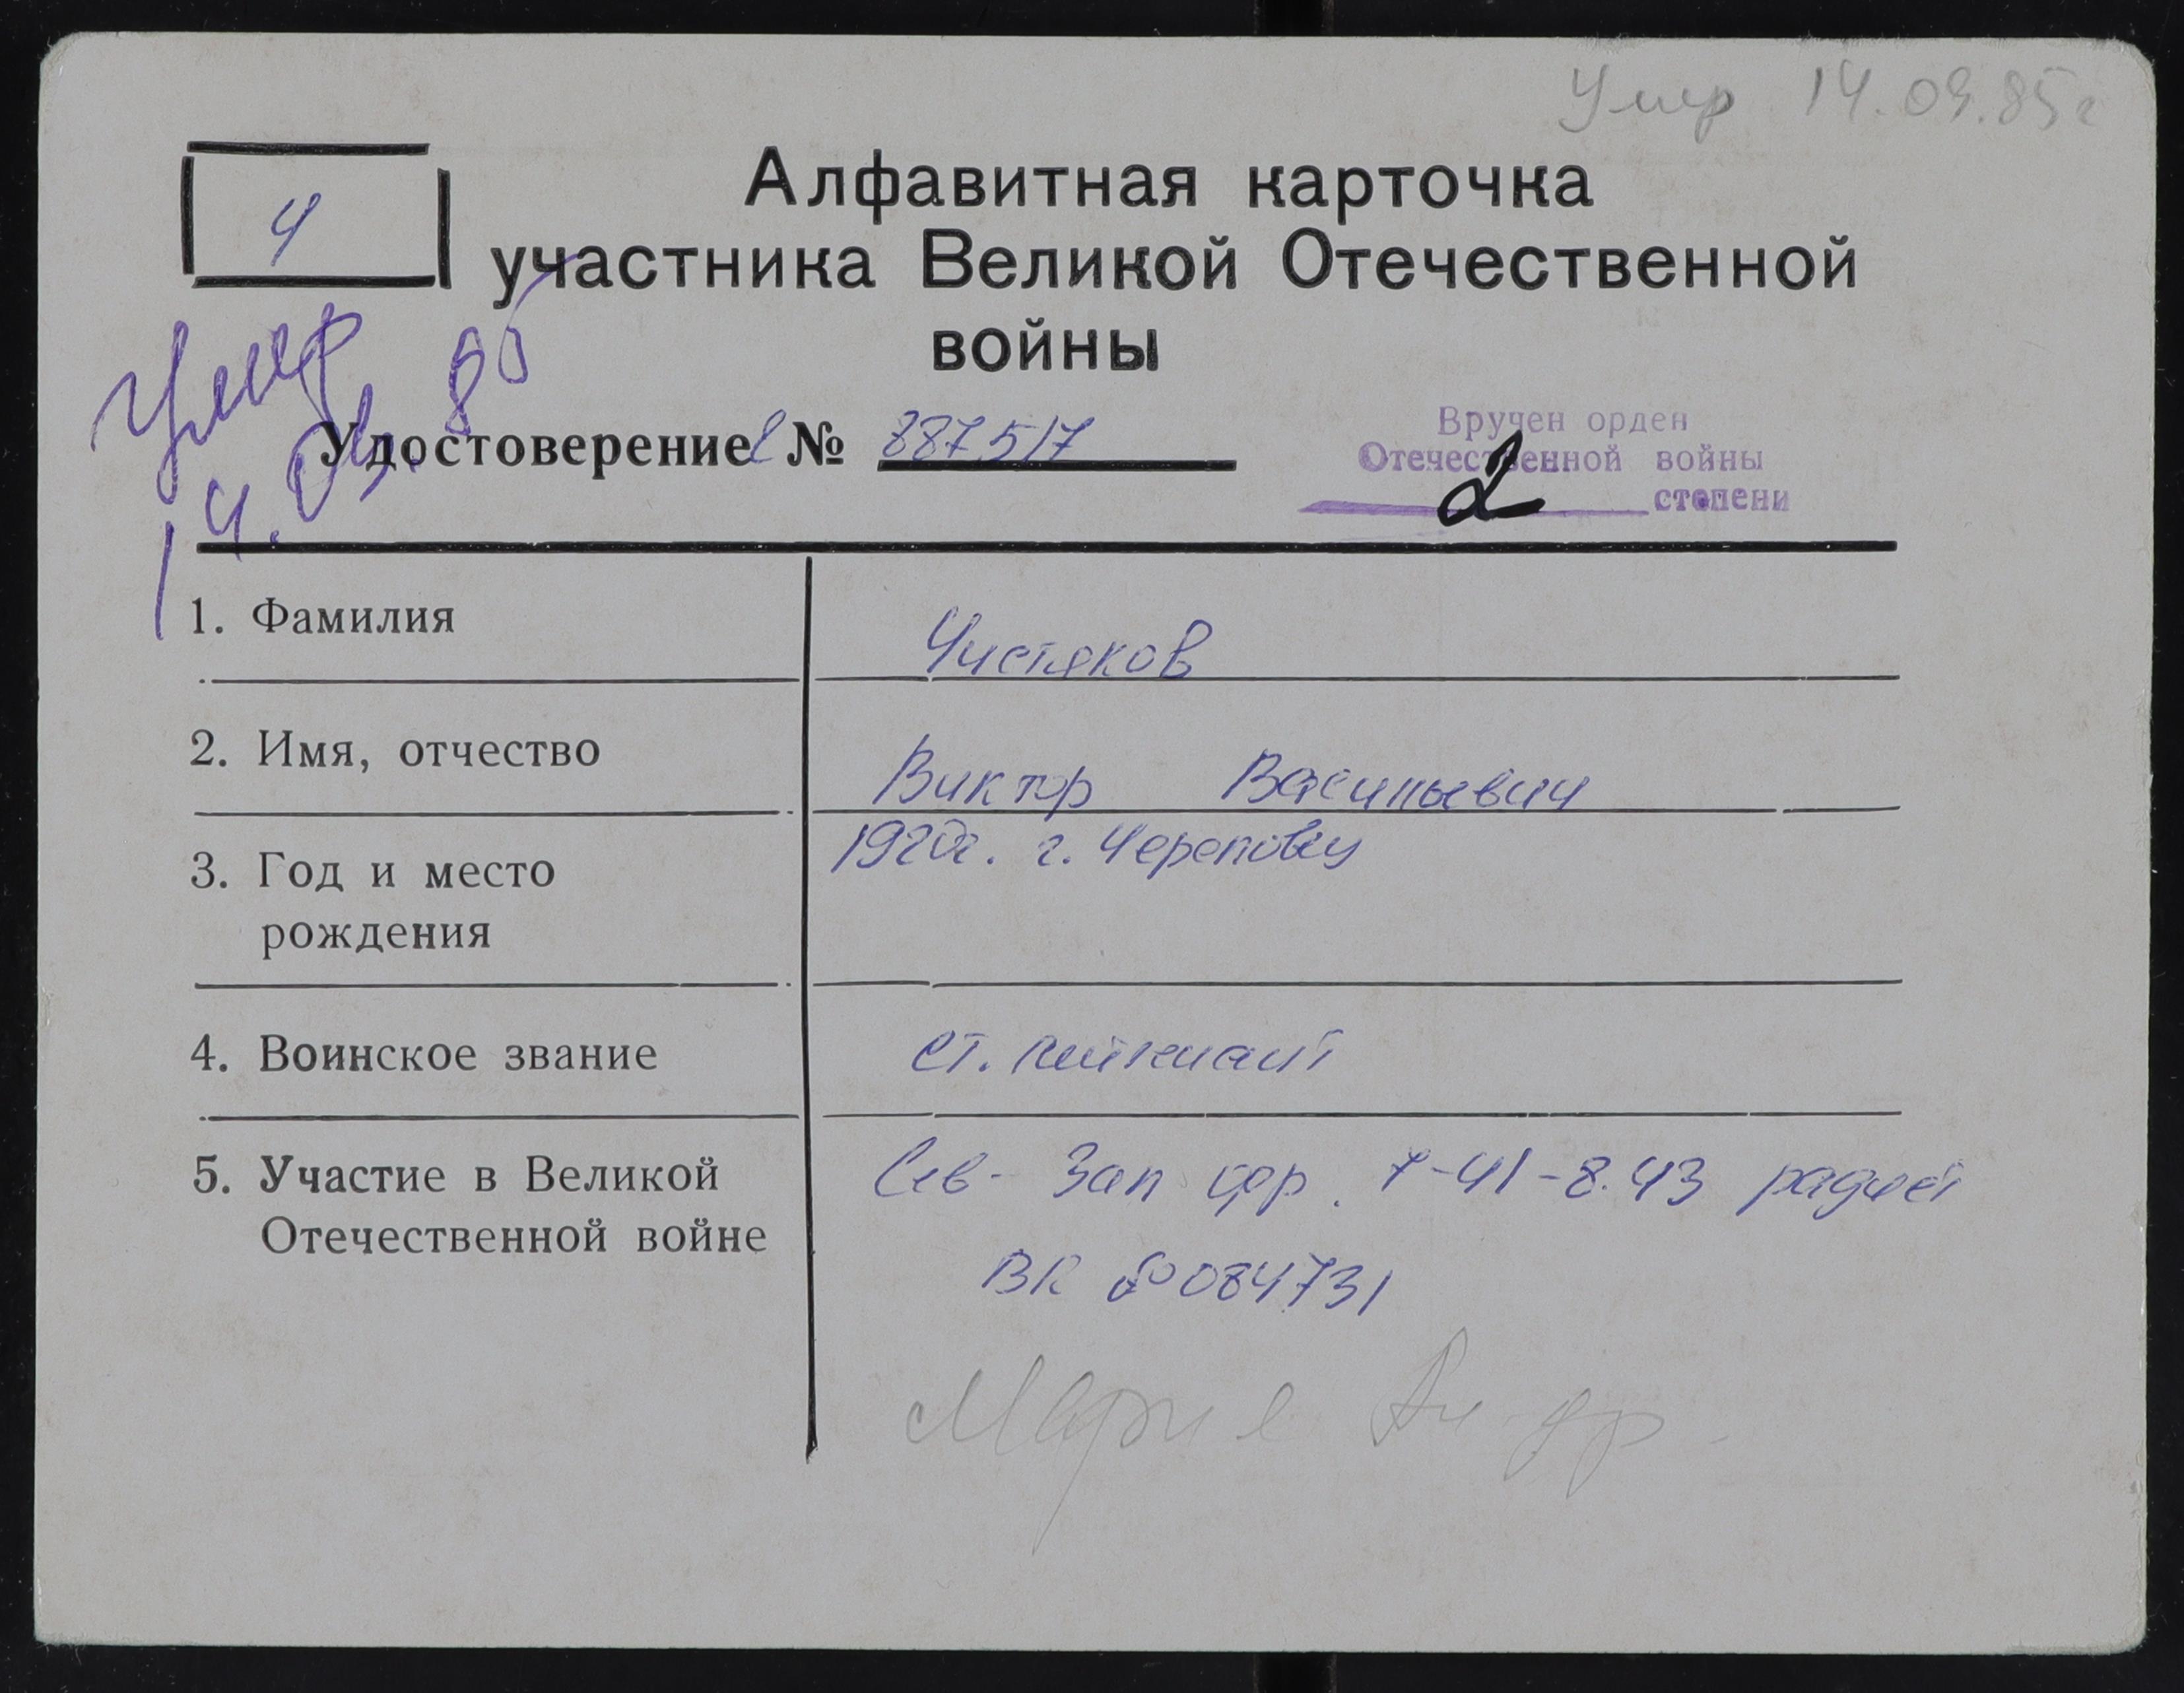 Умер 14.09.85г
Ч
Алфавитная карточка
участника Великой Отечественной
войны
Умер
Удостоверение № 887517
Вручен орден
Отечественной войны
2 степени
1. Фамилия
Чистяков
2. Имя, отчество
Виктор Васильевич
3. Год и место
рождения
1920г. г. Череповец
4. Воинское звание
ст. лейтенант
5. Участие в Великой
Отечественной войне
Сев- Зап фр. 7-41-8.43 радист
ВК 084731
Мария